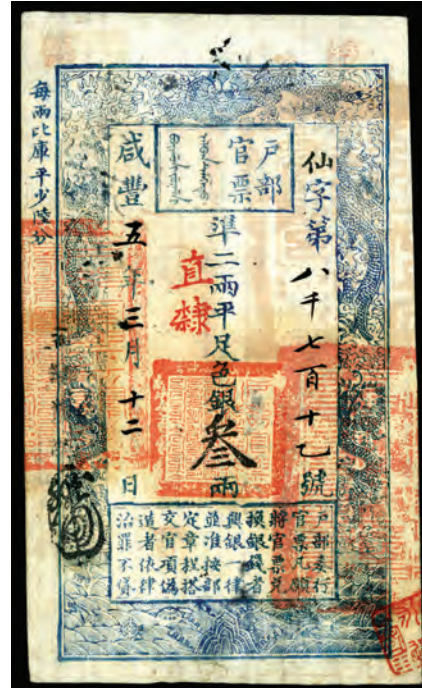 戶部
官票
仙字第八千七百十乙號
準二兩平足色銀叁兩
直隸
咸豐五年三月十二日
每兩比庫平少陸分
戶部奏行
官票凡願
將官票兌
換銀錢者
與銀一律
並准按部
定章程搭
交官項偽
造者依律
治罪不貸